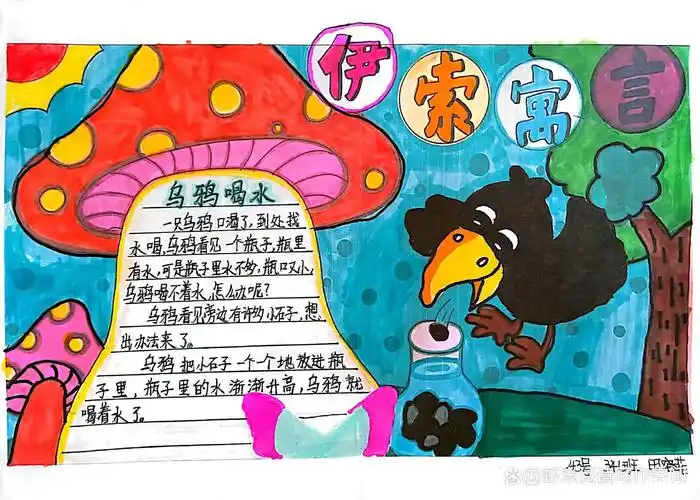 伊索寓言
乌鸦喝水
一只乌鸦口渴了,到处找
水喝,乌鸦看见一个瓶子,瓶里
有水,可是瓶子里水不多,瓶口又小,
乌鸦喝不着水,怎么办呢?
乌鸦看见旁边有许多小石子,想
出办法来了。
乌鸦把小石子一个一个地放进瓶
子里,瓶子里的水渐渐升高,乌鸦就
喝着水了。
43号 341班 田